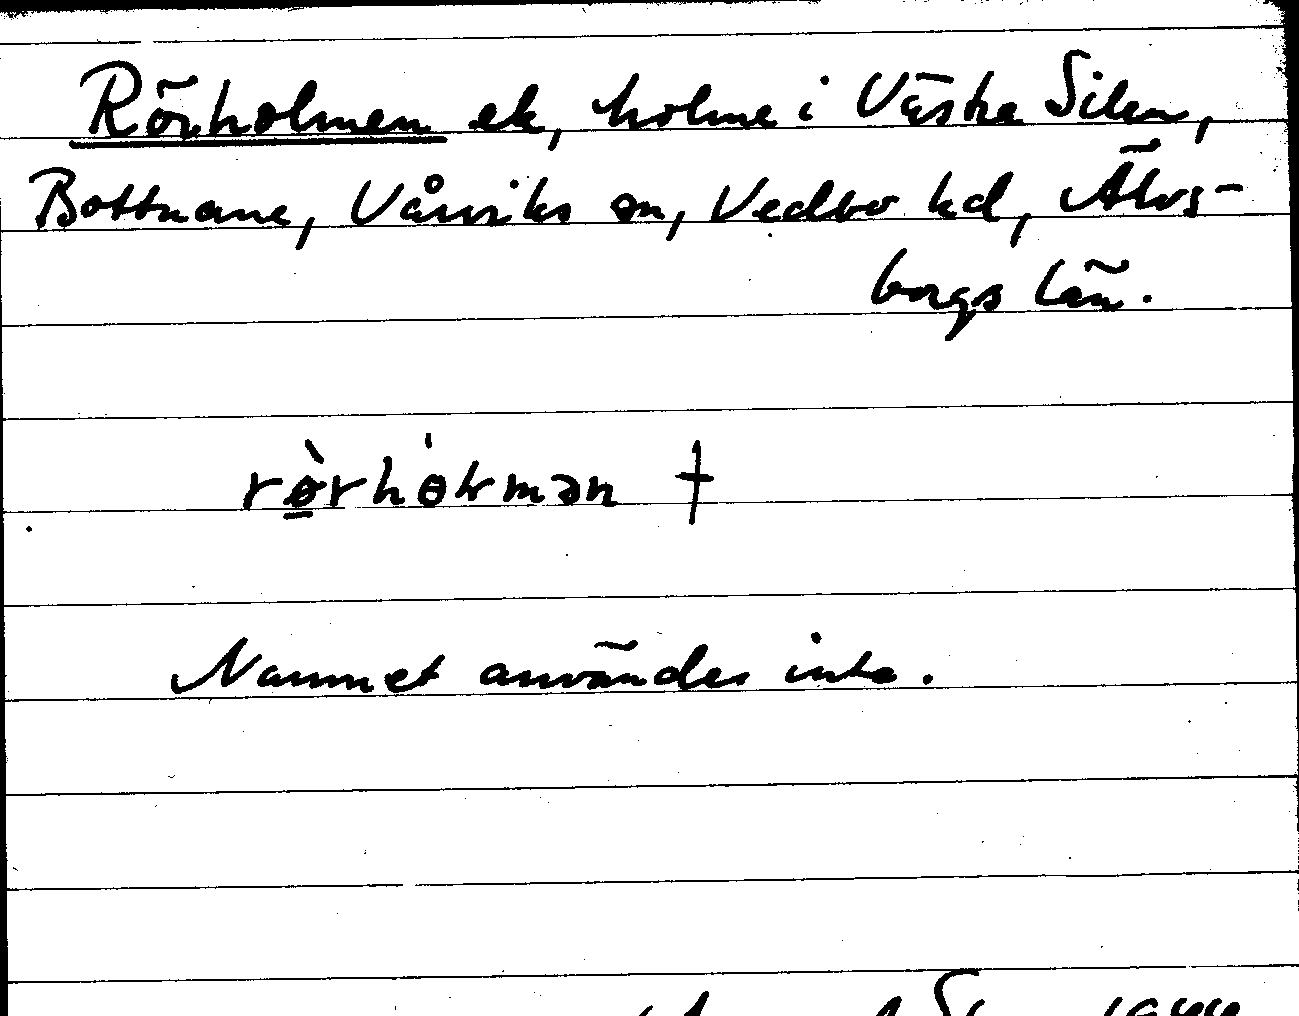 Rörholmen ek, holme i Västra Silen,
Bottnane, Vårviks sn, Vedbo hd, Älvs-
borgs län.
rø̲̀rhɵ̍ɫmən †
Namnet användes inte.